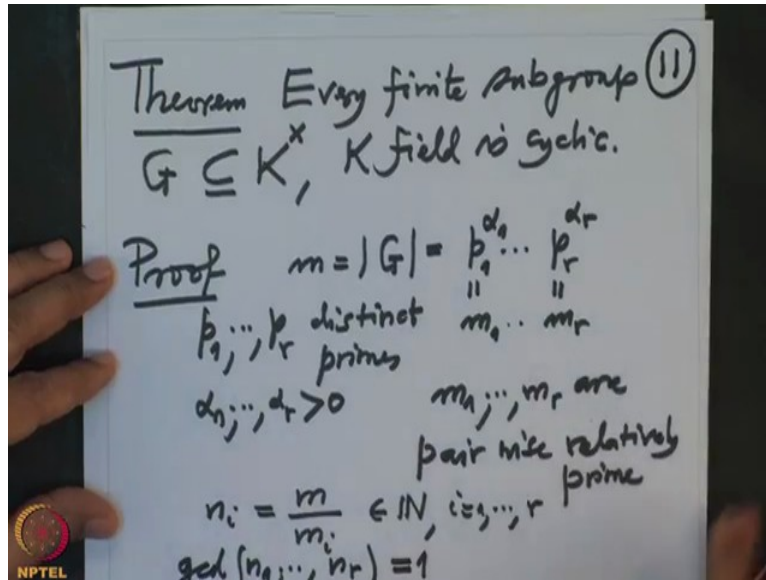 Theorem Every finite subgroup (11)
G ⊆ K^×, K field is cyclic.
Proof m = |G| = p_1^{α_1} ... p_r^{α_r}
|| ||
p_1, ..., p_r distinct m_1 .. m_r
primes
α_1, ..., α_r > 0 m_1, ..., m_r are
pair wise relatively
prime
n_i = m/m_i ∈ ℕ, i=1, ..., r
gcd (n_1, ..., n_r) = 1
NPTEL